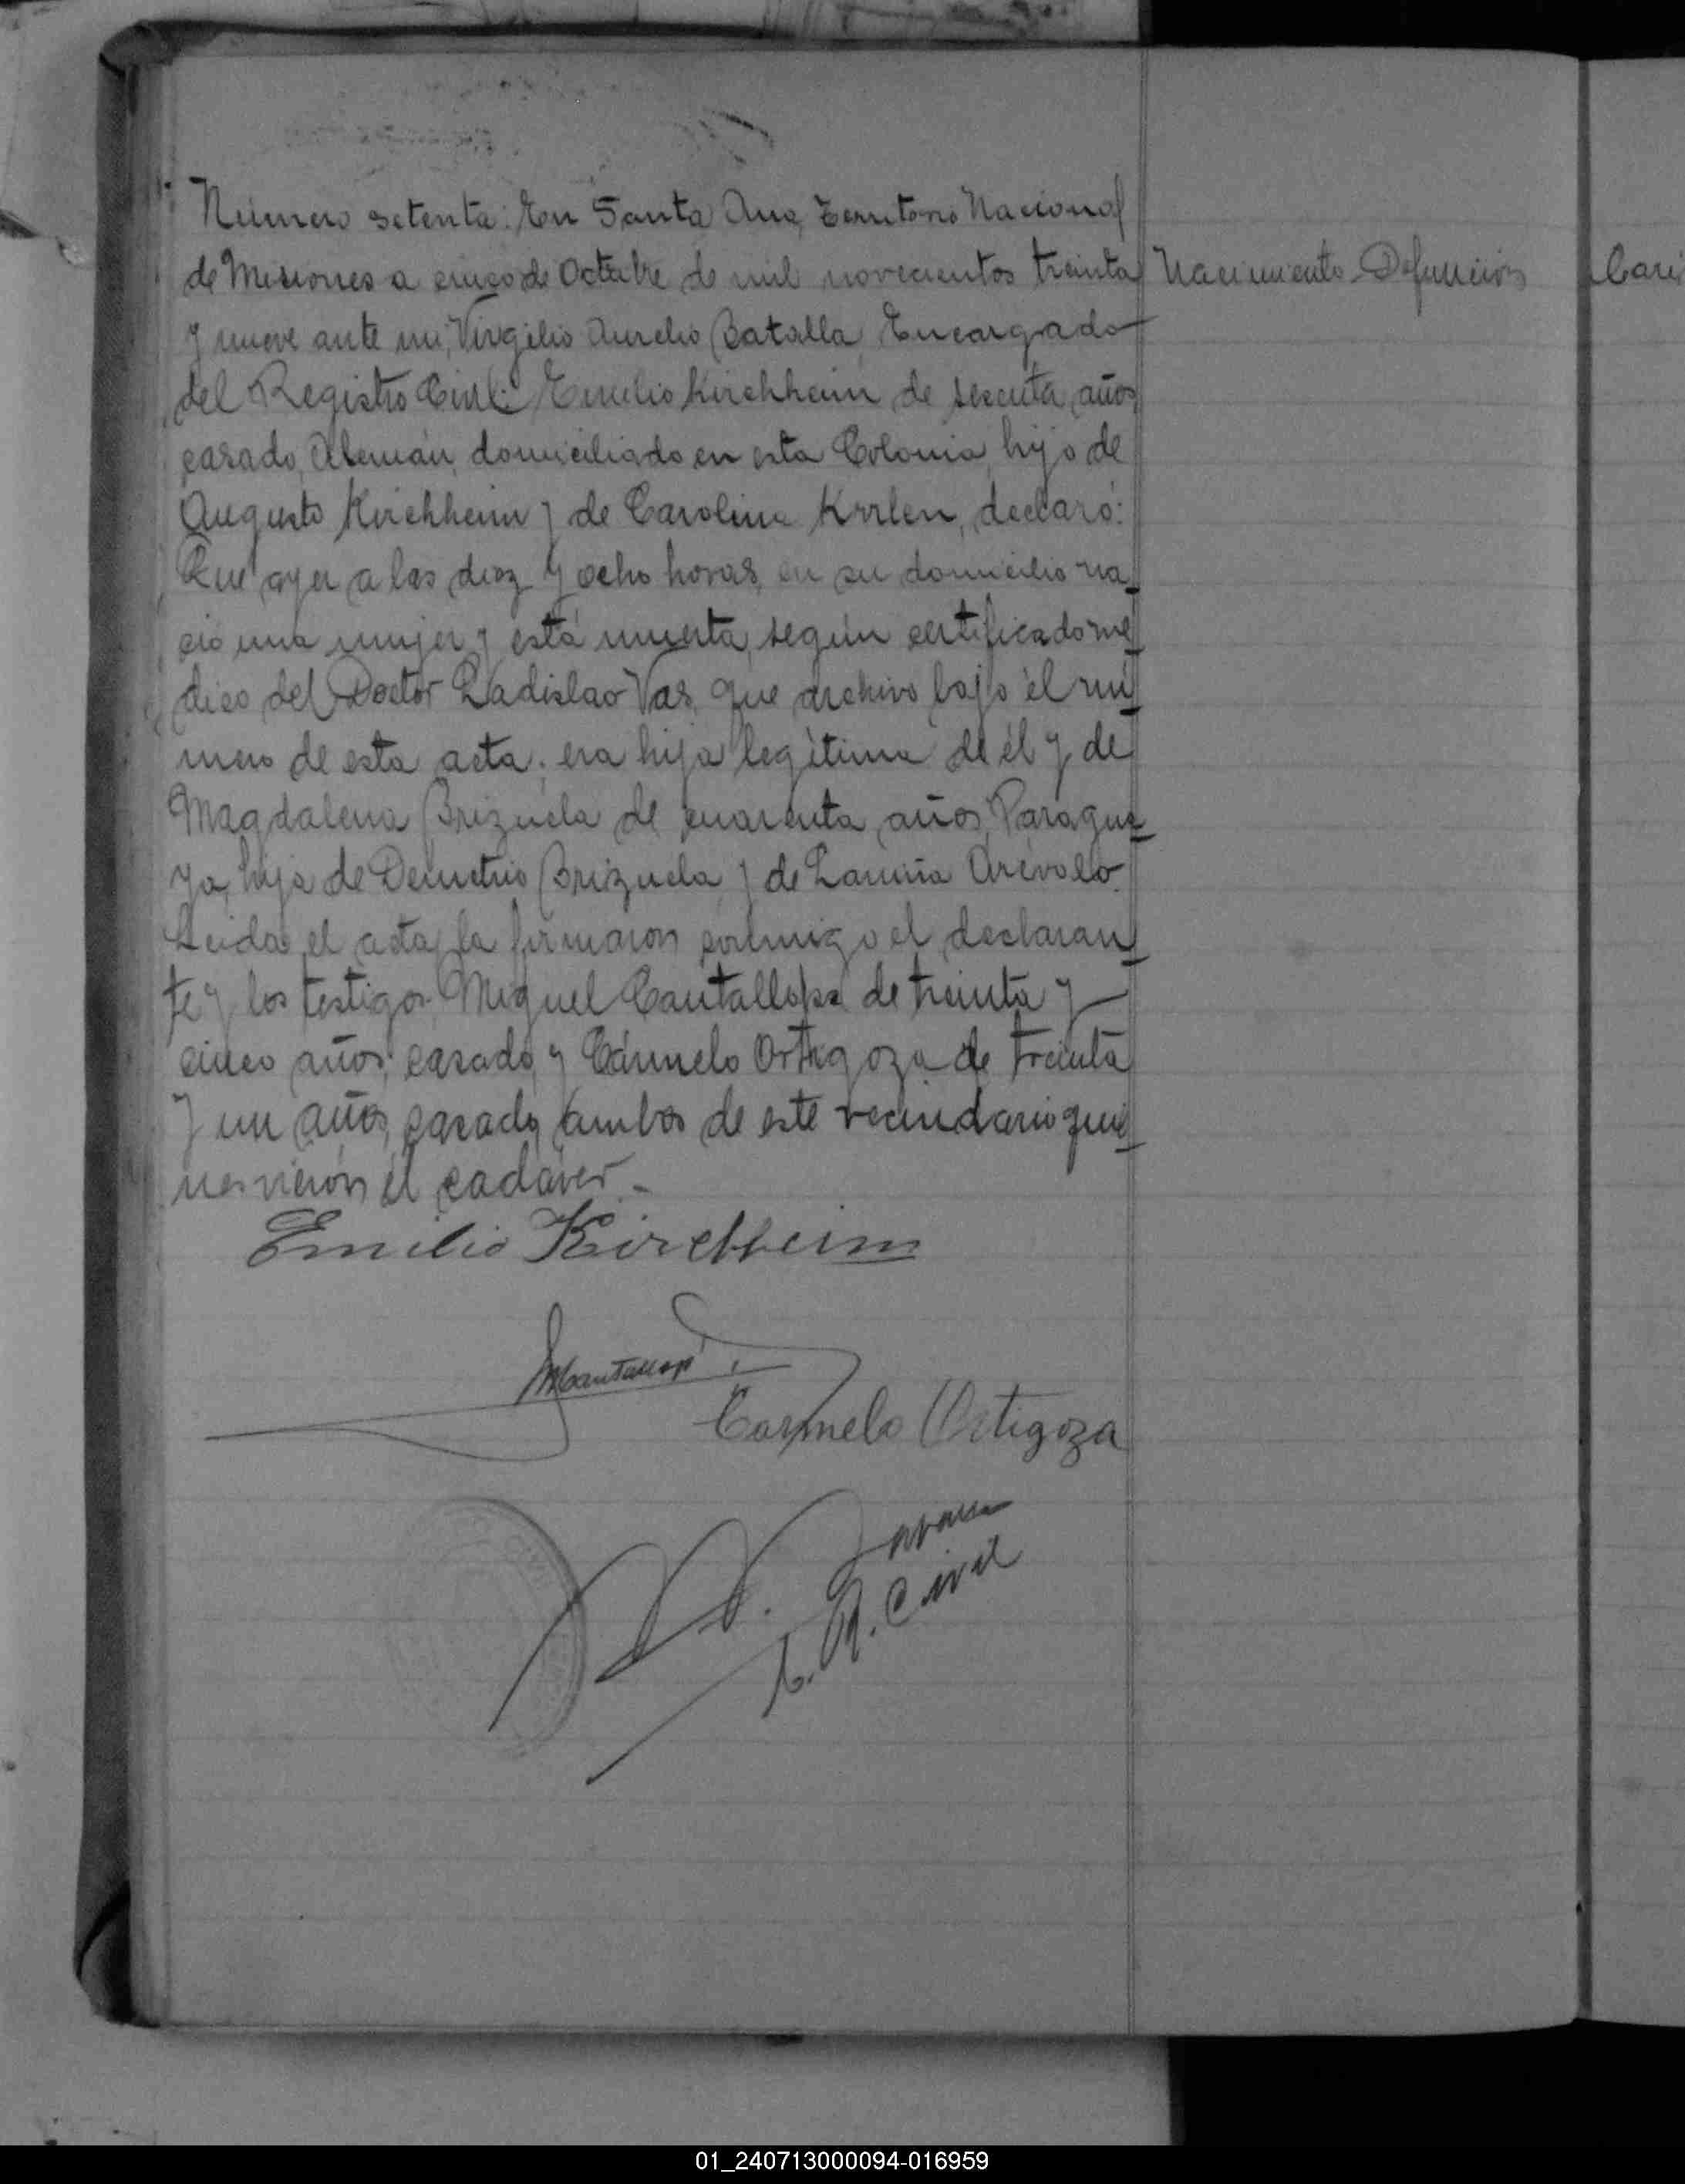 Número setenta: En Santa Ana, Territorio Nacional
de Misiones a cinco de Octubre de mil novecientos treinta
y nueve ante mí, Virgilio Aurelio Batalla, Encargado
del Registro Civil: Emilio Kirchheim de sesenta años,
casado, Alemán, domiciliado en esta Colonia, hijo de
Augusto Kirchheim y de Carolina Krrlen, declaró:
Que ayer a las diez y ocho horas, en su domicilio na
ció una mujer y está muerta, según certificado mé
dico del Doctor Ladislao Vas, que archivo bajo el nú
mero de esta acta; era hija legítima de él y de
Magdalena Brizuela de cuarenta años, Paragua
ya, hija de Demetrio Brizuela y de Arévalo.
Leida el acta, la firmaron conmigo el declaran
te y los testigos Miguel Cantallops de treinta y
cinco años, casado, y Cármelo Ortigoza de treinta
y un años, casado, ambos de este vecindario quie
nes vieron el cadáver.-
Nacimiento-Defunción
Emilio Kirchheim
MCantallops
Carmelo Ortigoza
E. R. Civil
01_240713000094-016959